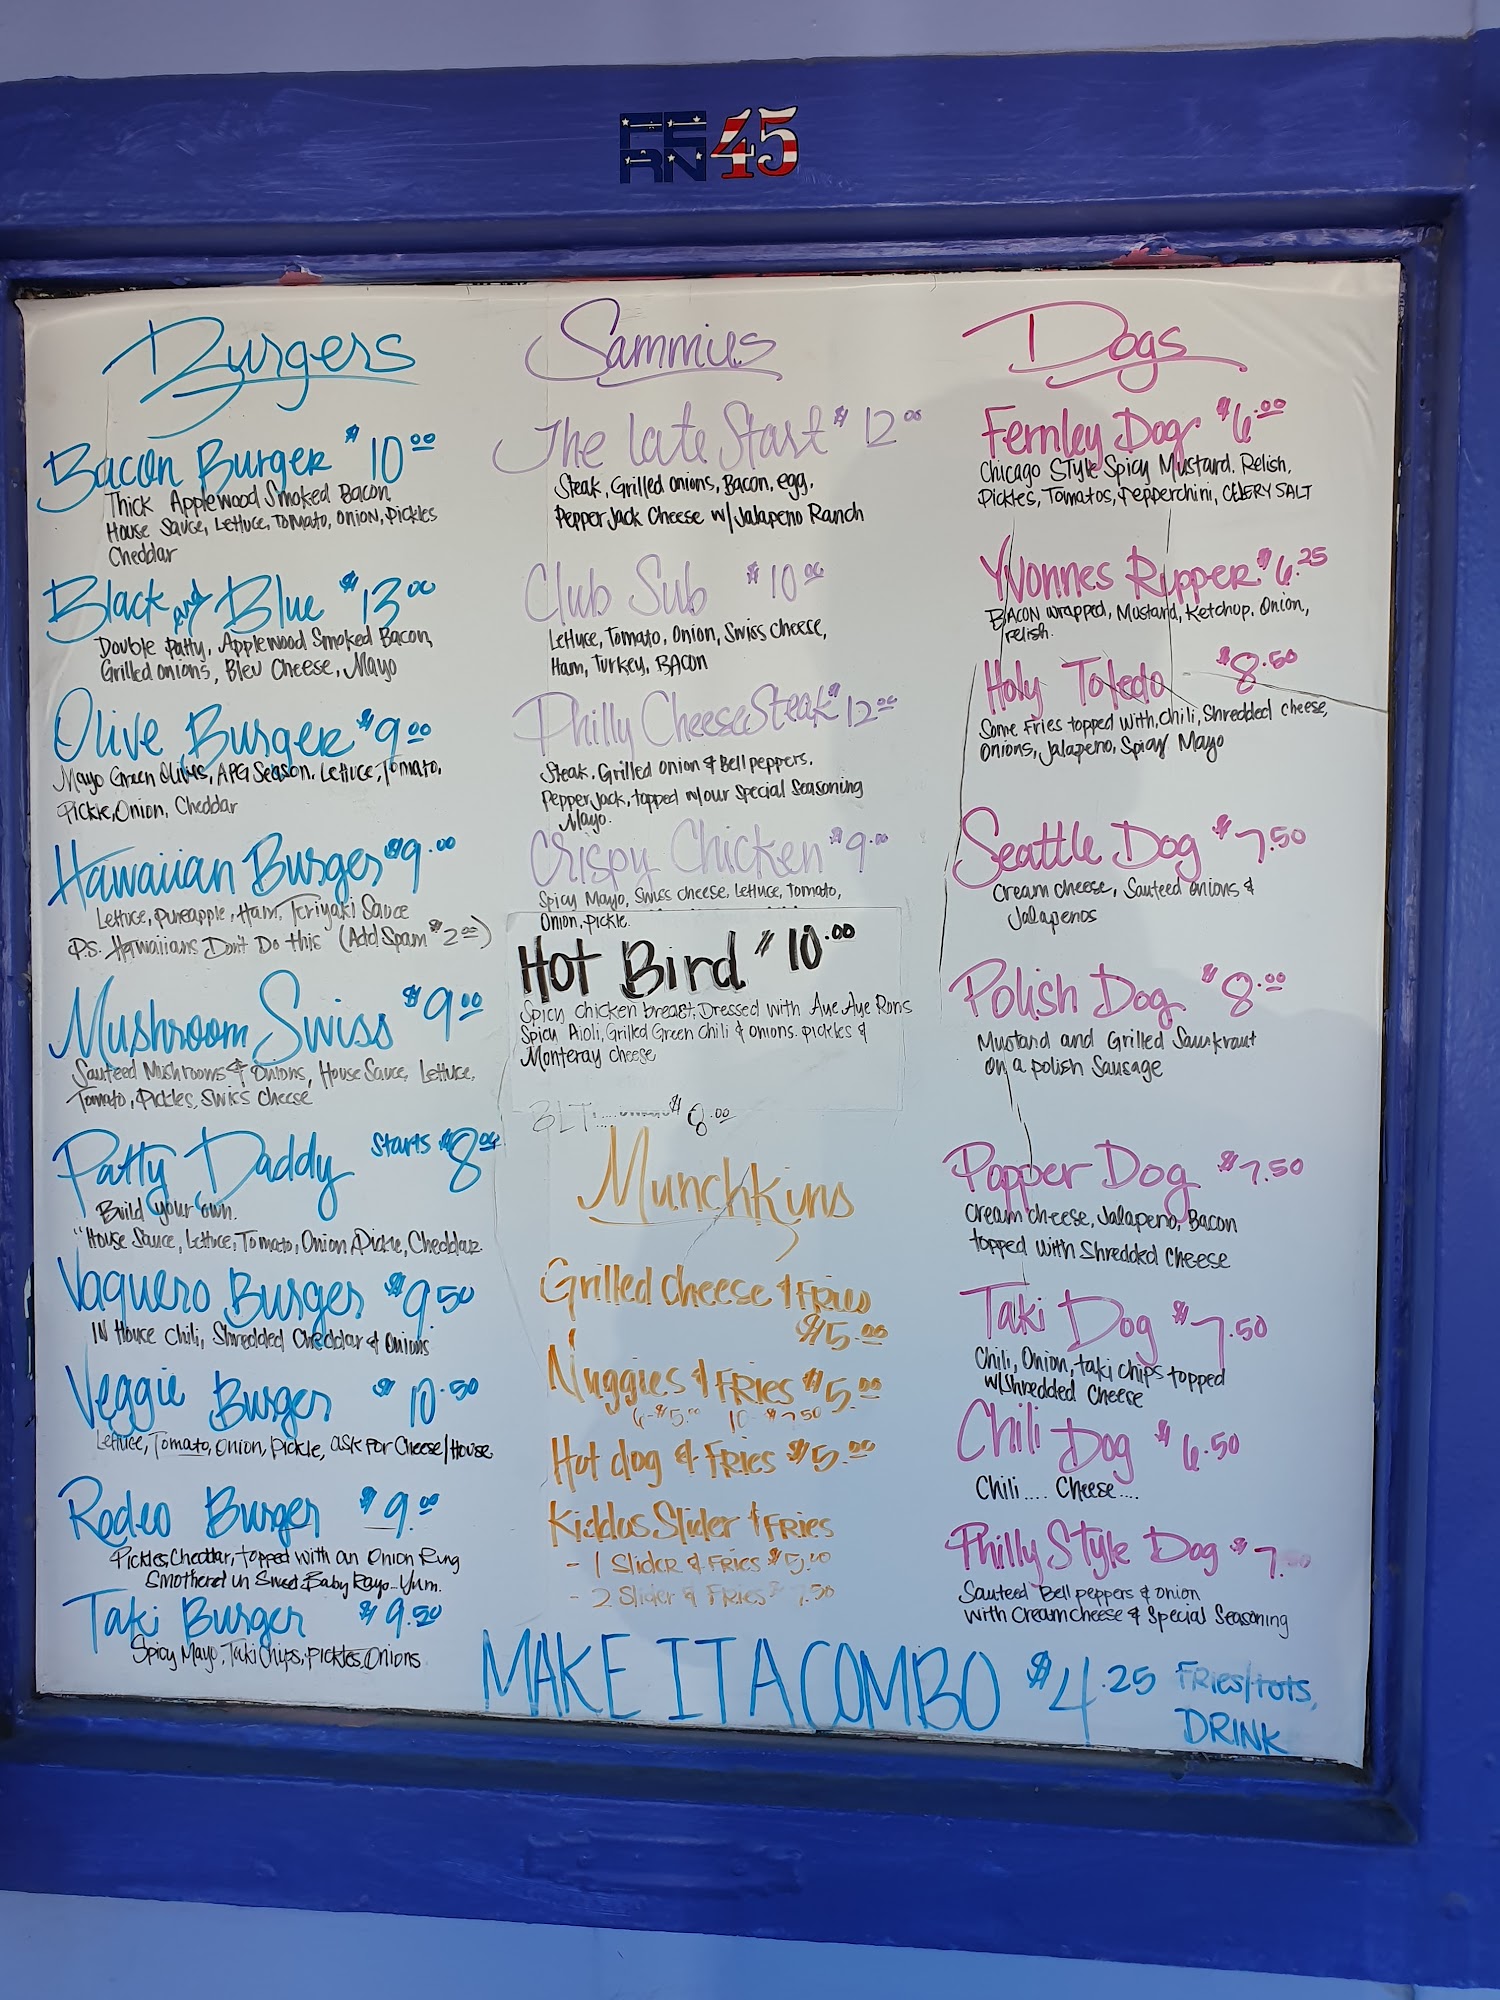 FERN 45
Burgers
Bacon Burger $10.00
Thick Applewood Smoked Bacon,
House Sauce, Lettuce, Tomato, Onion, Pickles
Cheddar
Black and Blue $13.00
Double Patty, Applewood Smoked Bacon,
Grilled onions, Bleu Cheese, Mayo
Olive Burger $9.00
Mayo Green Olives, APG Season, Lettuce, Tomato,
Pickle, Onion, Cheddar
Hawaiian Burger $9.00
Lettuce, pineapple, Ham, Teriyaki Sauce
P.S. Hawaiians Don't Do this (Add Spam $2.00)
Mushroom Swiss $9.00
Sauteed Mushrooms & Onions, House Sauce, Lettuce,
Tomato, Pickles, Swiss Cheese
Patty Daddy Starts $8.00
Build your own.
"House Sauce, Lettuce, Tomato, Onion, Pickle, Cheddar
Vaquero Burger $9.50
IN House Chili, Shredded Cheddar & Onions
Veggie Burger $10.50
Lettuce, Tomato, Onion, Pickle, ask for Cheese/House
Rodeo Burger $9.00
Pickles, Cheddar, topped with an Onion Ring
Smothered in Sweet Baby Rays-Yum.
Taki Burger $9.50
Spicy Mayo, Taki Chips, Pickles, Onions
Sammies
The Late Start $12.00
Steak, Grilled onions, Bacon, egg,
Pepper Jack Cheese w/Jalapeno Ranch
Club Sub $10.00
Lettuce, Tomato, Onion, Swiss Cheese,
Ham, Turkey, BACON
Philly CheeseSteak $12.00
Steak, Grilled Onion & Bell peppers,
Pepper Jack, topped w/our Special Seasoning
Mayo.
Crispy Chicken $9.00
Spicy Mayo, Swiss cheese, Lettuce, Tomato,
Onion, Pickle.
Hot Bird $10.00
Spicy chicken breast, Dressed with Aye Aye Rons
Spicy Aioli, Grilled Green Chili & onions. pickles &
Monteray cheese
BLT $8.00
Munchkins
Grilled cheese & Fries
$5.00
Nuggies & Fries $5.00
6-$5.00 10-$7.50
Hot dog & Fries $5.00
Kiddos Slider & Fries
- 1 Slider & Fries $5.00
- 2 Slider & Fries $7.50
Dogs
Fernley Dog $6.00
Chicago Style Spicy Mustard, Relish,
Pickles, Tomatos, Pepperchini, CELERY SALT
Yvonnes Ripper $6.25
BACON wrapped, Mustard, Ketchup, Onion,
relish.
Holy Toledo $8.50
Some Fries topped with, Chili, Shredded cheese,
Onions, Jalapeno, Spicy Mayo
Seattle Dog $7.50
Cream cheese, Sauteed onions &
Jalapenos
Polish Dog $8.00
Mustard and Grilled Saurkraut
on a polish Sausage
Popper Dog $7.50
Cream cheese, Jalapeno, Bacon
topped with Shredded cheese
Taki Dog $7.50
Chili, Onion, taki chips topped
w/shredded Cheese
Chili Dog $6.50
Chili.... Cheese....
Philly Style Dog $7.
Sauteed Bell peppers & onion
with Creamcheese & Special Seasoning
MAKE IT A COMBO $4.25 Fries/tots,
DRINK